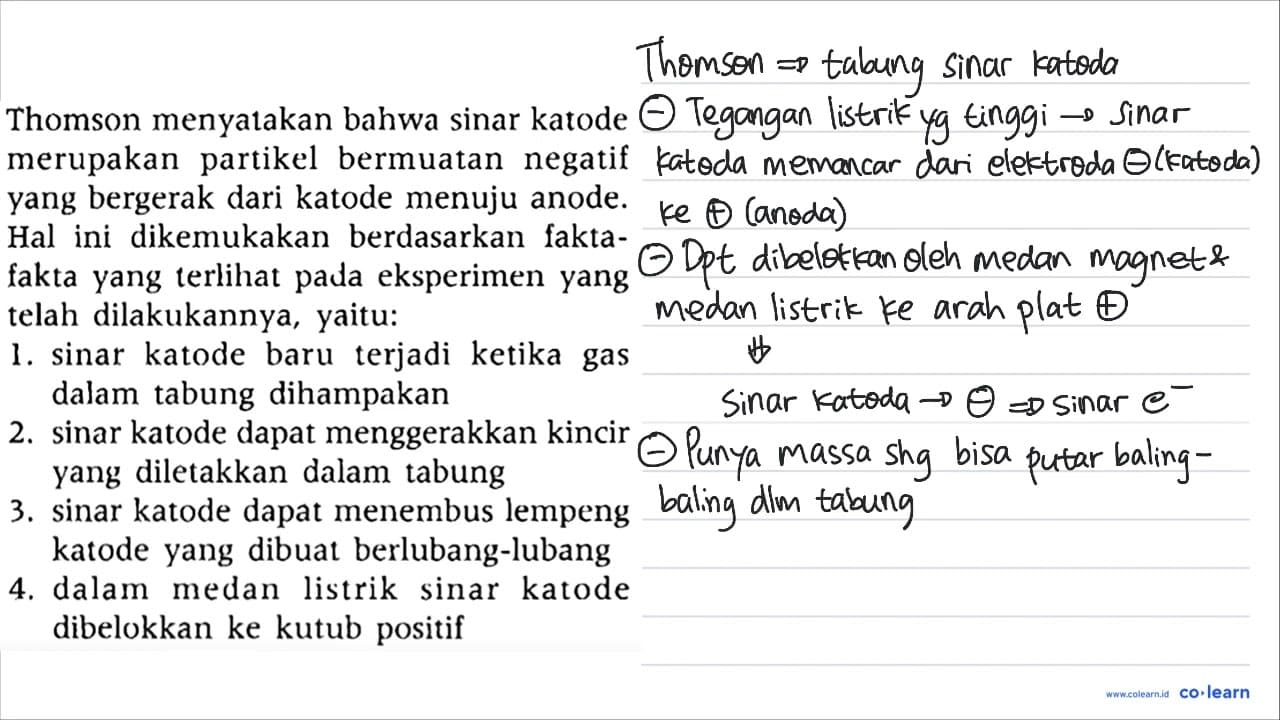 Thomson menyatakan bahwa sinar katode
merupakan partikel bermuatan negatif
yang bergerak dari katode menuju anode.
Hal ini dikemukakan berdasarkan fakta-
fakta yang terlihat pada eksperimen yang
telah dilakukannya, yaitu:
1. sinar katode baru terjadi ketika gas
dalam tabung dihampakan
2. sinar katode dapat menggerakkan kincir
yang diletakkan dalam tabung
3. sinar katode dapat menembus lempeng
katode yang dibuat berlubang-lubang
4. dalam medan listrik sinar katode
dibelokkan ke kutub positif
Thomson ⇒ tabung sinar katoda
⊖ Tegangan listrik yg tinggi → sinar
katoda memancar dari elektroda ⊖ (katoda)
ke ⊕ (anoda)
⊖ Dpt dibelokkan oleh medan magnet &
medan listrik ke arah plat ⊕
⇓
sinar katoda → ⊖ ⇒ sinar e⁻
⊖ Punya massa shg bisa putar baling-
baling dlm tabung
www.colearn.id co·learn